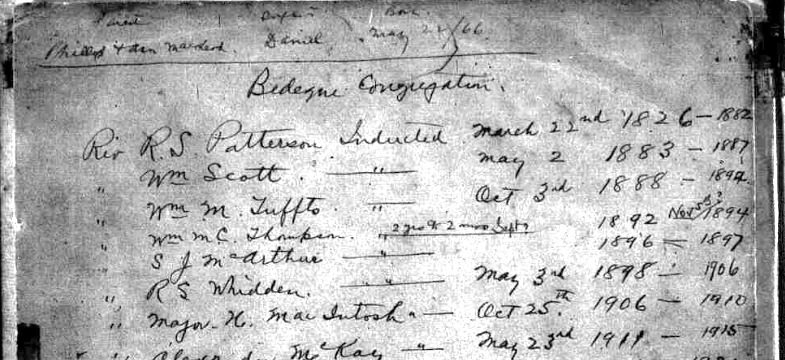 Parent Born
Phillip & Ann MacLeod. Daniel, May 22/66.
Bedeque Congregation.
Rev R. S. Patterson Inducted March 22nd 1826 – 1882
" Wm Scott. " May 2 1883 – 1887
" Wm M. Tuffts. " Oct 3rd 1888 – 1892
" Wm McC. Thompson. " 1892 Nov 1894
" S J McArthur " 1896 – 1897
" R S Whidden. " May 3rd 1898 – 1906
" Major. H. MacIntosh " Oct 25th. 1906 – 1910
" McKay " May 23rd 1911 – 1915